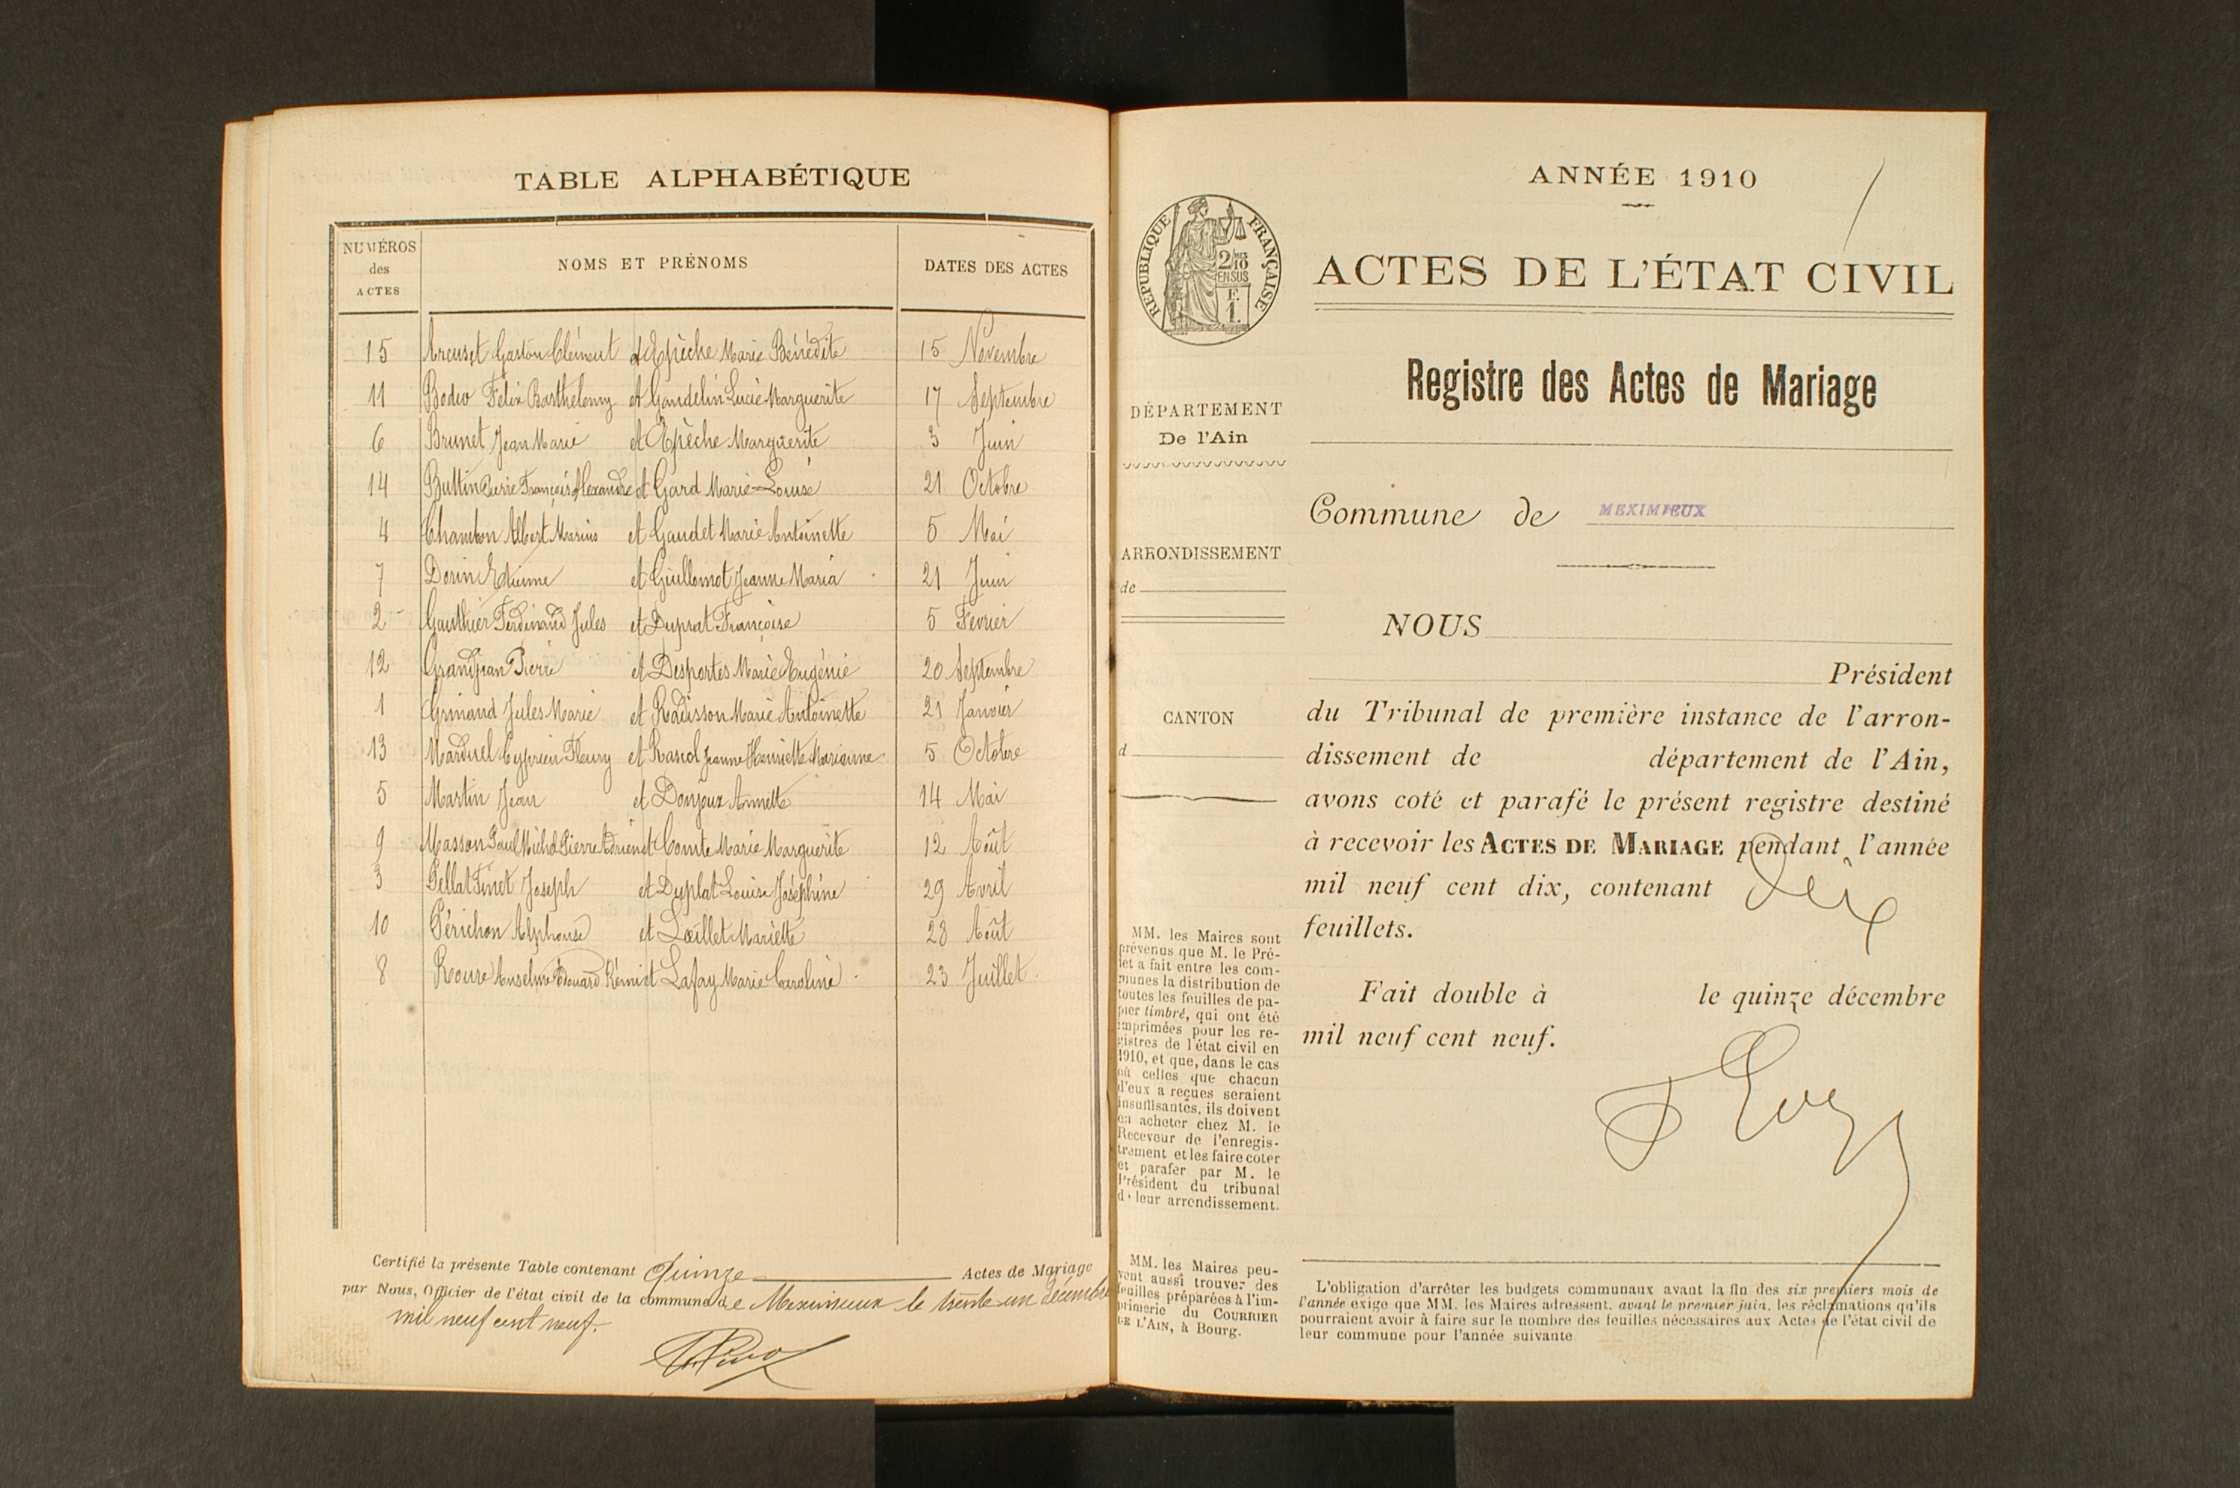 TABLE ALPHABÉTIQUE
NUMÉROS des ACTES NOMS ET PRÉNOMS DATES DES ACTES
15 Areuset Gaston Clément et Épèche Marie Bénédite 15 Novembre
11 Félix Barthélemy et Gandelin Lucie Marguerite 17 Septembre
6 Brunet Jean Marie et Épèche Marguerite 3 Juin
14 Buttin Pierre François Alexandre et Gard Marie-Louise 21 Octobre
4 Chambon Albert Marius et Gaudet Marie Antoinette 5 Mai
7 Dorin Etienne et Guillomot Jeanne Maria 21 Juin
2 Gauthier Ferdinand Jules et Duprat Françoise 5 Février
12 Grandjean Pierre et Desportes Marie Eugénie 20 Septembre
1 Grinand Jules Marie et Radisson Marie Antoinette 21 Janvier
13 Marduel Cyprien Fleury et Rascol Jeanne Henriette Marianne 5 Octobre
5 Martin Jean et Donjoux Annette 14 Mai
9 Masson Paul Michel Pierre Adrien et Comte Marie Marguerite 12 Août
3 Pellat Finet Joseph et Duplat Louise Joséphine 29 Avril
10 Périchon Alphonse et Lœillet Mariette 28 Août
8 Roure Anselme Edouard Rémi et Lafay Marie Caroline 23 Juillet
Certifié la présente Table contenant Quinze Actes de Mariage
par Nous, Officier de l'état civil de la commune de Meximieux le trente un décembre
mil neuf cent neuf.
ANNÉE 1910
1
RÉPUBLIQUE FRANÇAISE
2/10 EN SUS
F.
1.
ACTES DE L'ÉTAT CIVIL
Registre des Actes de Mariage
DÉPARTEMENT
De l'Ain
ARRONDISSEMENT
de
CANTON
d
MM. les Maires sont
prévenus que M. le Pré-
fet a fait entre les com-
munes la distribution de
toutes les feuilles de pa-
pier timbré, qui ont été
imprimées pour les re-
gistres de l'état civil en
1910, et que, dans le cas
où celles que chacun
d'eux a reçues seraient
insuffisantes, ils doivent
en acheter chez M. le
Receveur de l'enregis-
trement et les faire coter
et parafer par M. le
Président du tribunal
de leur arrondissement.
MM. les Maires peu-
vent aussi trouver des
feuilles préparées à l'im-
primerie du COURRIER
DE L'AIN, à Bourg.
Commune de MEXIMIEUX
NOUS
Président
du Tribunal de première instance de l'arron-
dissement de département de l'Ain,
avons coté et parafé le présent registre destiné
à recevoir les ACTES DE MARIAGE pendant l'année
mil neuf cent dix, contenant dix
feuillets.
Fait double à le quinze décembre
mil neuf cent neuf.
L'obligation d'arrêter les budgets communaux avant la fin des six premiers mois de
l'année exige que MM. les Maires adressent, avant le premier juin, les réclamations qu'ils
pourraient avoir à faire sur le nombre des feuilles nécessaires aux Actes de l'état civil de
leur commune pour l'année suivante